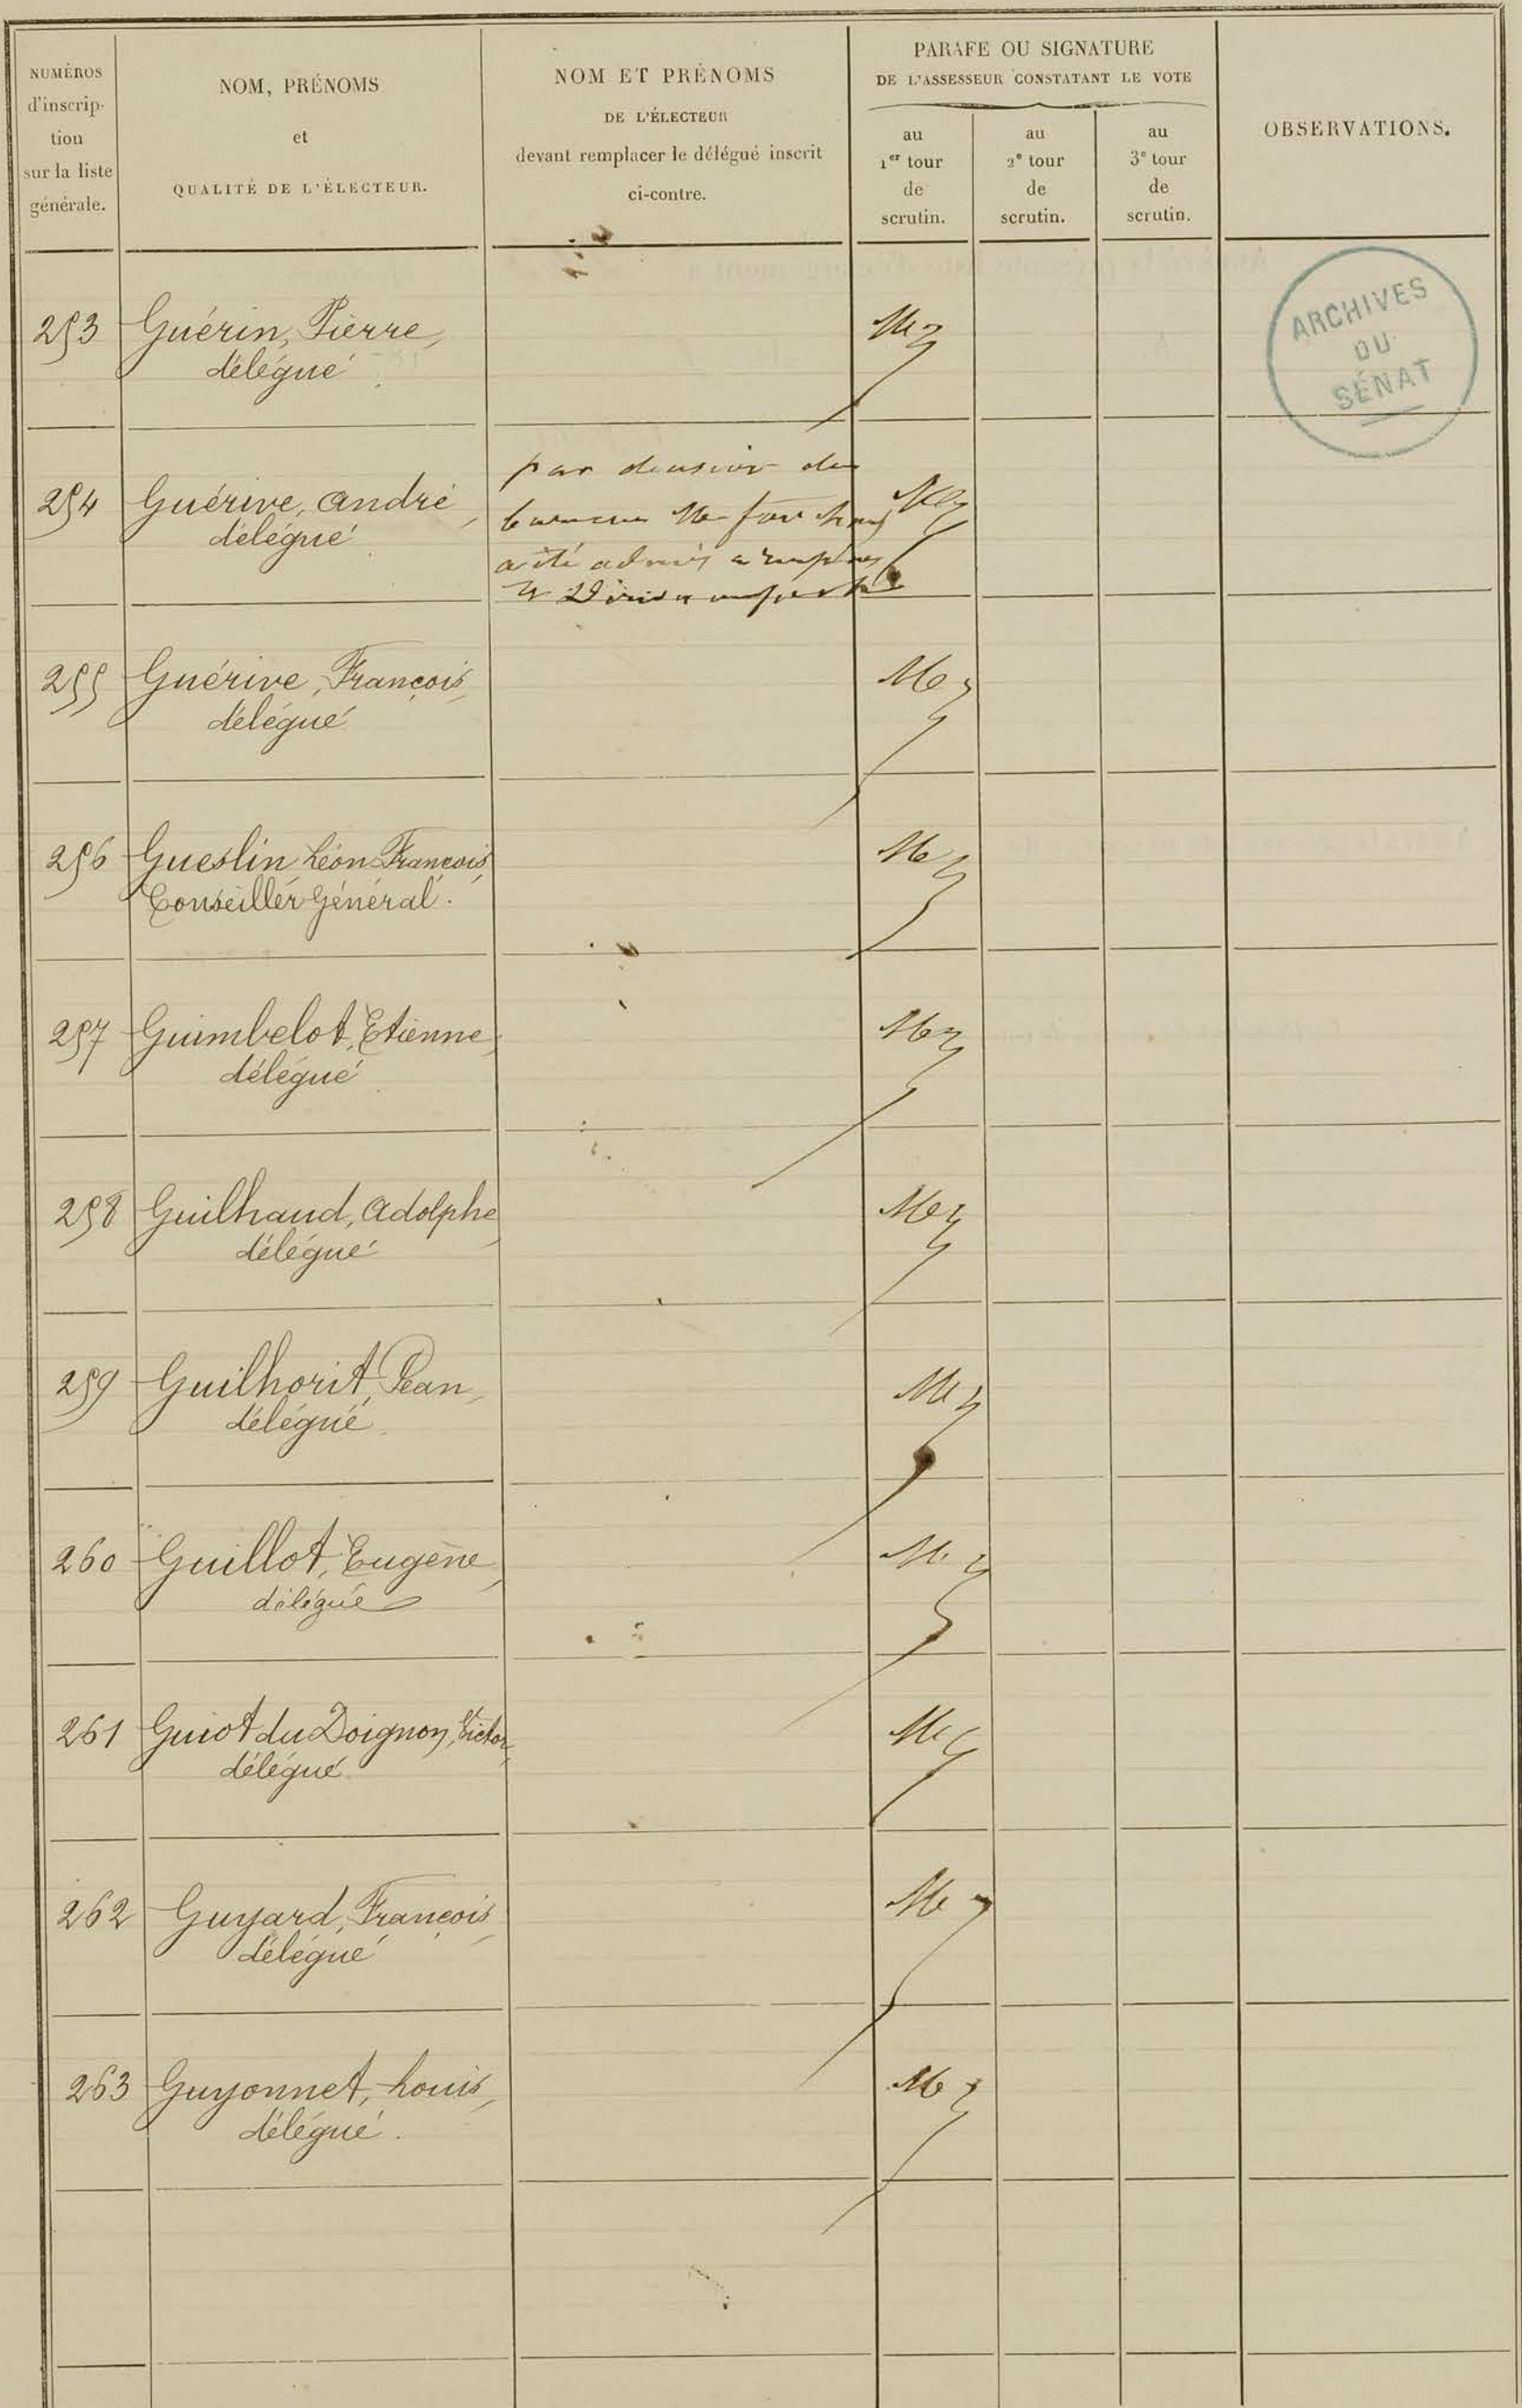 NUMÉROS
d'inscrip-
tion
sur la liste
générale.
NOM, PRÉNOMS
et
QUALITÉ DE L'ÉLECTEUR.
NOM ET PRÉNOMS
DE L'ÉLECTEUR
devant remplacer le délégué inscrit
ci-contre.
PARAFE OU SIGNATURE
DE L'ASSESSEUR CONSTATANT LE VOTE
au
1er tour
de
scrutin.
au
2e tour
de
scrutin.
au
3e tour
de
scrutin.
OBSERVATIONS.
ARCHIVES
DU
SÉNAT
253 Guérin, Pierre,
délégué
254 Guérive, André,
délégué
par décision du
bureau
a été admis
255 Guérive, François,
délégué
256 Gueslin Léon François,
Conseiller Général.
257 Guimbelot, Etienne,
délégué
258 Guilhaud, Adolphe,
délégué
259 Guilhorit, Jean,
délégué
260 Guillot, Eugène,
délégué
261 Guiot du Doignon, Victor,
délégué
262 Guyard, François,
délégué
263 Guyonnet, Louis,
délégué.